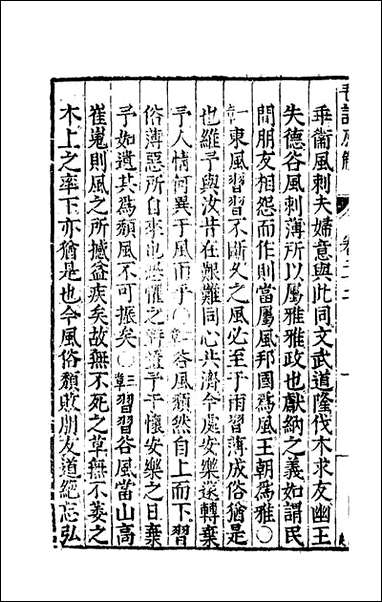 毛詩原解 卷二十二
乖衞風刺夫婦意與此同文武道隆伐木求友幽王
失德谷風刺薄所以屬雅雅政也獻納之義如謂民
間朋友相怨而作則當屬風邦國爲風王朝爲雅〇
一章東風習習不斷久之風必至于雨習薄成俗猶是
也維予與汝昔在艱難同心共濟今處安樂遂轉棄
予人情何異于風雨乎〇二章谷風頽然自上而下習
俗薄惡所自來也恐懼之時寘予于懷安樂之日棄
予如遺其爲頽風不可振矣〇三章習習谷風當山高
崔嵬則風之所撼益疾矣故無不死之草無不萎之
木上之率下亦猶是也今風俗頽敗朋友道絕忘弘